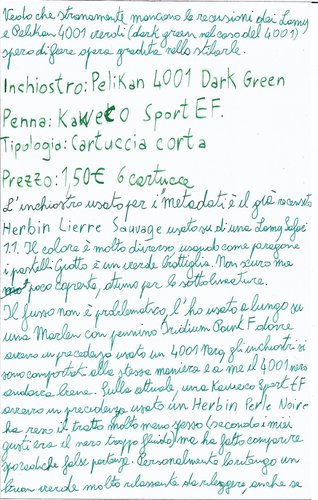 Vedo che stranamente mancano le recensioni dei Lamy
e Pelikan 4001 verdi (dark green nel caso del 4001)
spero di fare opera gradita nello stilarle.
Inchiostro: Pelikan 4001 Dark Green
Penna: Kaweco Sport EF.
Tipologia: Cartuccia corta
Prezzo: 1,50€ 6 cartucce
L'inchiostro usato per i "metadati" è il già recensito
Herbin Lierre Sauvage usato su di una Lamy Safari
1.1. Il colore è molto diverso, usando come paragone
i pastelli Giotto è un verde bottiglia. Non scuro ma
poco coprente, ottimo per le sottolineature.
Il flusso non è problematico, l'ho usato a lungo su
una Marlen con pennino Iridium Point F dove
avevo in precedenza usato un 4001 Nero, gli inchiostri si
sono comportati alla stessa maniera e a me il 4001 nero
andava bene. Sulla attuale, una Kaweco Sport EF
avevo in precedenza usato un Herbin Perle Noire
ha reso il tratto molto meno spesso (secondo i miei
gusti era il nero troppo fluido) ma ha fatto comparire
sporadiche false partenze. Personalmente lo ritengo un
buon verde molto rilassante da rileggere, anche se